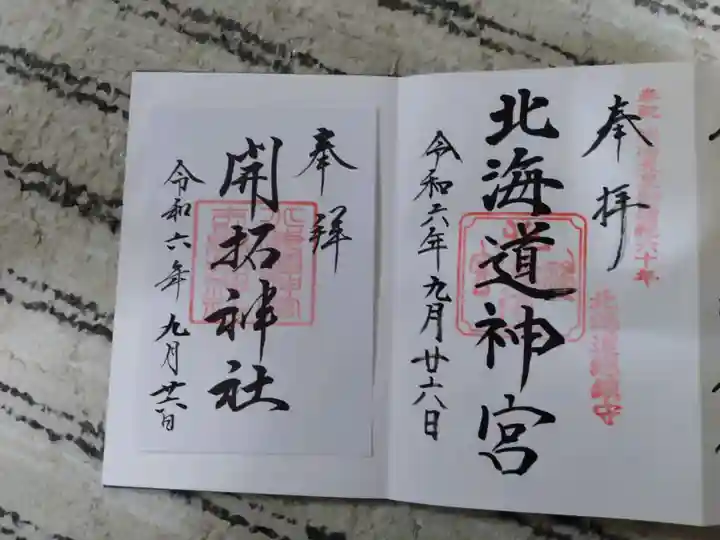 奉拝
北海道神宮
令和六年九月廿六日
北海道総鎮守
奉拝
開拓神社
令和六年九月廿六日